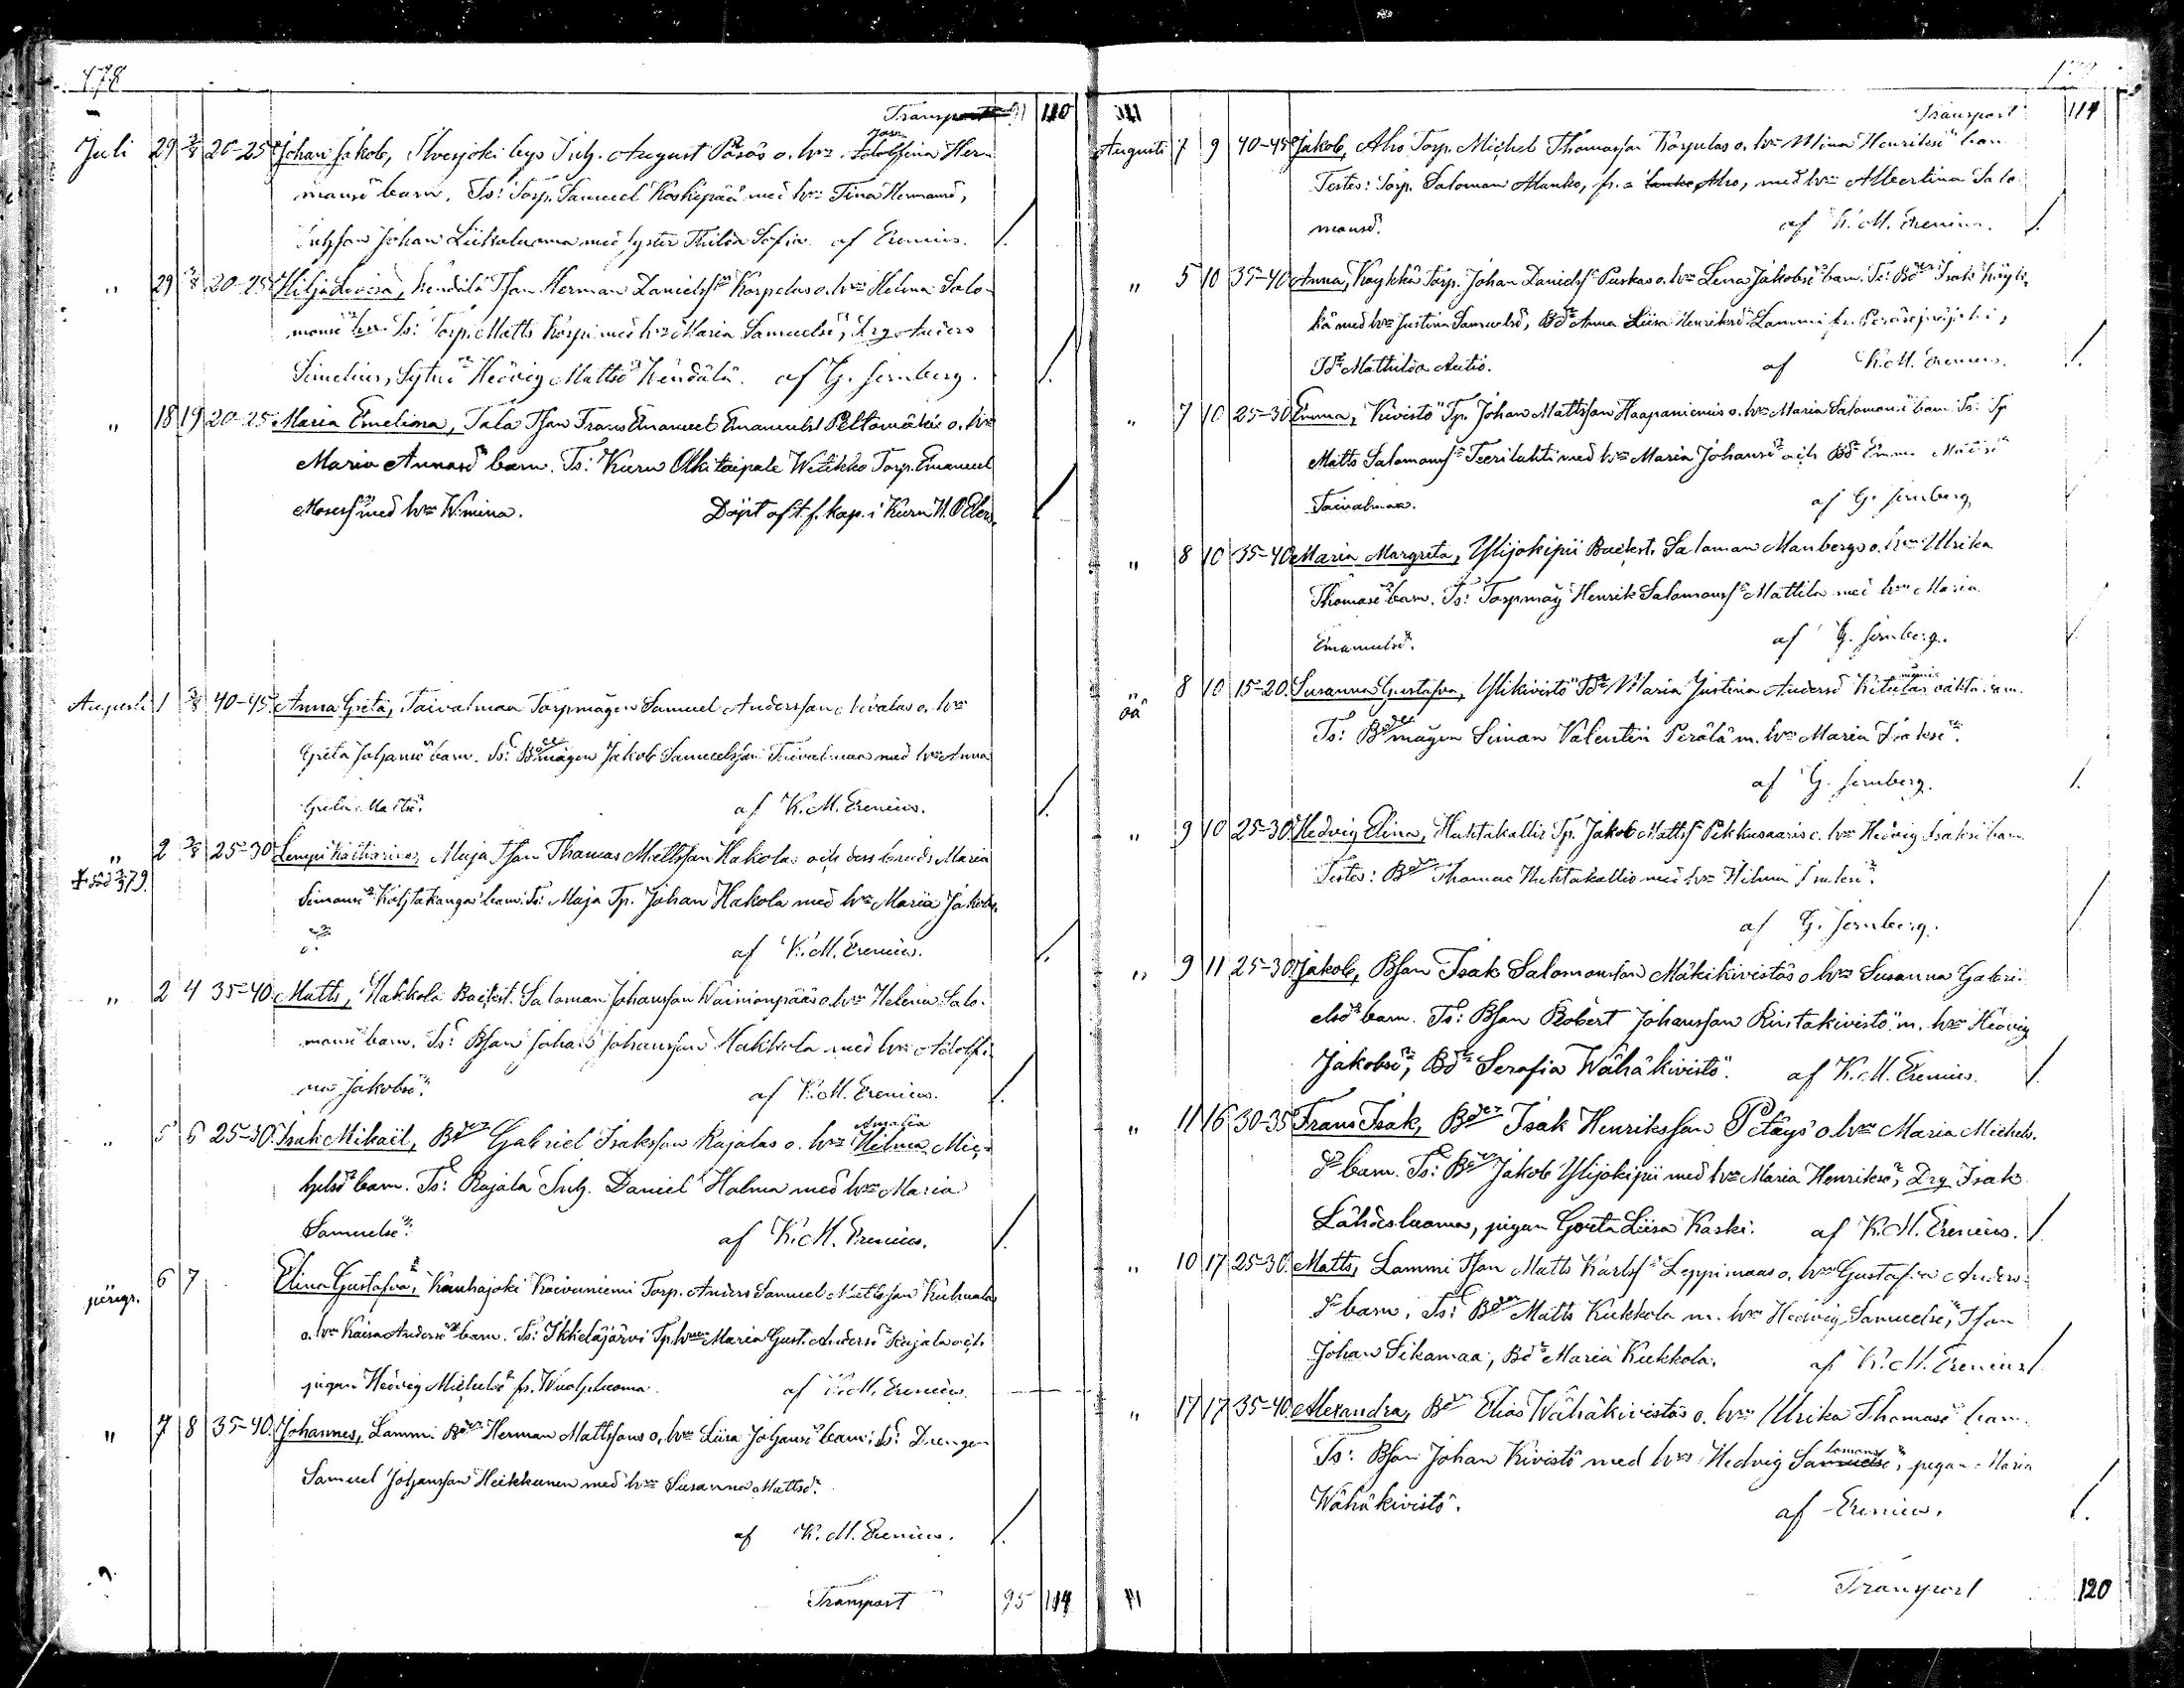 178
Transport 91 110
Juli 29 3/8 20-25 Johan Jakob, byo Inh. August Påsas o. hrs Adolfina Her-
mansd barn. Ts: Torp. Samuel Koskipää med hru Tina Hermansd,
Johan Liikaluoma med syster Thilda Sofia. af Erenius.
" 29 3/8 20-25 Hilja Lovisa, Kendälä Tson Herman Danielss Korpelas o. hrs Helena Salo-
monsd bn. Ts: Torp. Matts Korpi med hru Maria Samuelsd, Drg Anders
Simelius, Hedvig Mattsd Kendälä. af G. Jernberg.
" 18 19 20-25 Maria Emelina, Tala Tson Frans Emanuel Emanuelss Peltomäkis o. hrs
Maria Annasd barn. Ts: Kuru Olkitaipale Wetikko Torp. Emanuel
Mosess med hru Wmina. Döpt af t. f. kap. i Kuru
Augusti 1 3/8 40-45 Anna Greta, Taivalmaa Torpmågen Samuel Andersson o. hrs
Greta Johansd barn. Ts: Bdemågen Jakob Samuelsson Taivalmaa med hru Anna
Greta Mattsd. af K. M. Erenius.
" 2 3/8 25-30 Lempi Katharina, Maja Tson Thomas Mattsson Hakolas och dess brud Maria
död 79.
Simonsd Koljtakangas barn. Ts: Maja Tp. Johan Hakola med hru Maria Jakobs-
d. af K. M. Erenius.
" 2 4 35-40 Matts, Hakkola Backst. Saloman Johansson Wainionpääs o. hrs Helena Salo-
monsd barn. Ts: Bson Johan Johansson Hakkola med hru Adolfi-
na Jakobsd. af K. M. Erenius.
" 5 6 25-30 Isak Mikael, Bden Gabriel Isaksson Rajalas o. hrs Amalia Hilma Mic-
helsd barn. Ts: Rajala Inh. Daniel Halma med hru Maria
Samuelsd. af K. M. Erenius.
6 7 Elina Gustafva, Kauhajoki Koivuniemi Torp. Anders Samuel Mattsson
o. hrs Kaisa Andersd barn. Ts: Ikkeläjärvi Tp. hru Maria Gust. Andersd och
pigan Hedvig Michelsd fr. af K. M. Erenius.
" 7 8 35-40 Johannes, Lammi Bden Herman Mattssons o. hrs Liisa Johansd barn. Ts: Drengen
Samuel Johansson Heikkinen med hru Susanna Mattsd.
af K. M. Erenius.
Transport 95 114
Transport 114
Augusti 7 9 40-45 Jakob, Aho Torp. Michel Thomasson Korpelas o. hrs Mina Henriksd barn
Testes: Torp. Saloman Alanko, fr. Aho, med hru Albertina Salo-
monsd. af K. M. Erenius.
" 5 10 35-40 Anna, Kaykkä Torp. Johan Daniels Puskas o. hrs Lena Jakobsd barn. Ts: Bden Isak Käyk-
kä med hru Justina Samuelsd, Bdr Anna Liisa Henriksd Lammi fr. Peräseinäjoki,
Tdr Mathilda Autio. af K. M. Erenius.
" 7 10 25-30 Emma, Kivistö Tp. Johan Mattsson Haapaniemis o. hrs Maria Salomonsd barn. Ts: Tp
Matts Salomonss Teerilahti med hru Maria Johansd och Bdr Emma
Taivalmaa. af G. Jernberg.
" 8 10 35-40 Maria Margreta, Ylijokipii Backst. Saloman Manbergs o. hrs Ulrika
Thomasd barn. Ts: Torpmåg Henrik Salomonss Mattila med hru Maria
Emanuelsd. af G. Jernberg.
" 8 10 15-20 Susanna Gustafva, Ylikivistö Tdr Maria Justina Andersd oäkta barn.
oä
Ts: Bdemågen Simon Valentin Perälä m. hru Maria Isaksd.
af G. Jernberg.
" 9 10 25-30 Hedvig Elina, Huhtakallio Tp. Jakob Mattss Pekkusaaris o. hrs Hedvig Isaksd barn
Testes: Bden Thomas Huhtakallio med hru Hilma Isaksd.
af G. Jernberg.
" 9 11 25-30 Jakob, Bson Isak Salomonsson Mäkikivistös o hrs Susanna Gabri-
elsd barn. Ts: Bson Robert Johansson Rintakivistö m. hru Hedvig
Jakobsd, Bdr Serafia Wähäkivistö. af K. M. Erenius.
" 11 16 30-35 Frans Isak, Bden Isak Henriksson Petäys o. hrs Maria Michels-
d barn. Ts: Bden Jakob Ylijokipii med hru Maria Henriksd, Drg Isak
Lähdesluoma, pigan Greta Liisa Kaski. af K. M. Erenius.
" 10 17 25-30 Matts, Lammi Tson Matts Karlss Leppimaas o. hrs Gustafva Anders-
d barn. Ts: Bden Matts Kukkola m. hru Hedvig Samuelsd, Tson
Johan Sikamaa, Bdr Maria Kukkola. af K. M. Erenius
" 17 17 35-40 Alexandra, Bden Elias Wähäkivistös o. hrs Ulrika Thomasd barn.
Ts: Bson Johan Kivistö med hru Hedvig Salomonsd, pigan Maria
Wähäkivistö. af Erenius.
Transport 120